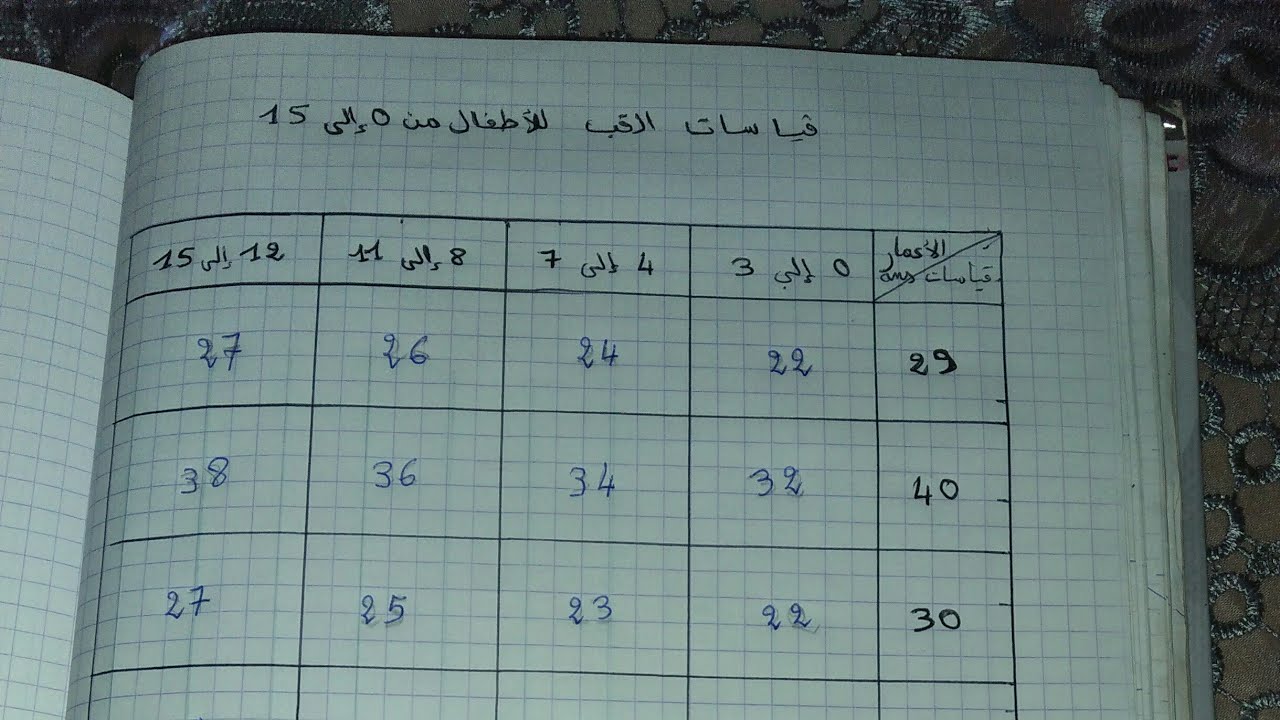 قياسات القب للأطفال من 0 إلى 15
الأعمار 0 إلي 3 4 إلى 7 8 إلى 11 12 إلى 15
قياسات
29 22 24 26 27
40 32 34 36 38
30 22 23 25 27